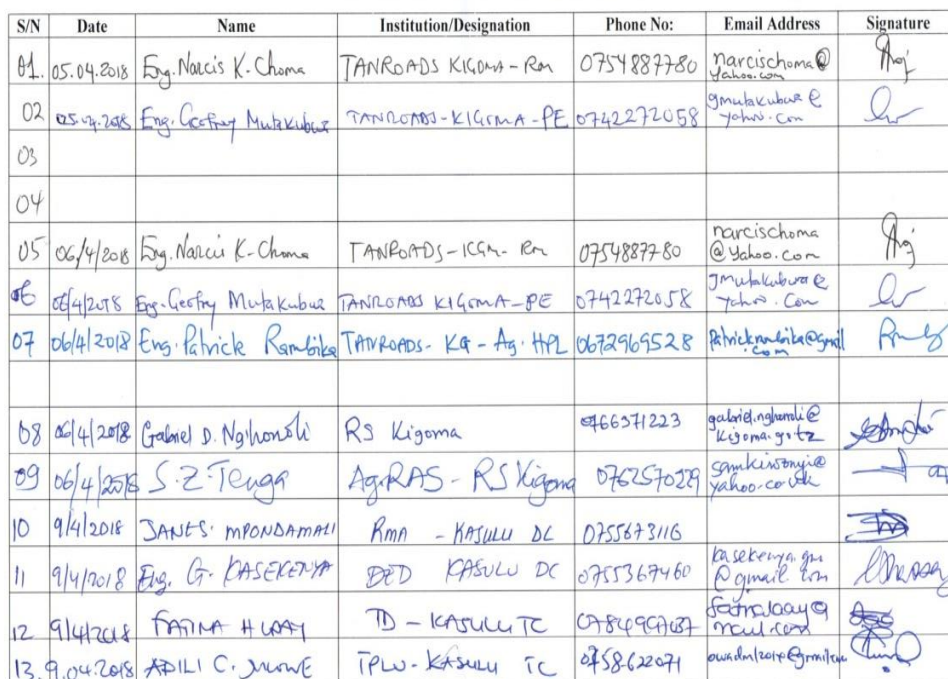 S/N Date Name Institution/Designation Phone No: Email Address Signature
01. 05.04.2018 Eng. Narcis K. Choma TANROADS KIGOMA - RM 0754887780 narcischoma@
yahoo.com
02 05.04.2018 Eng. Geofrey Mutakubwa TANROADS-KIGOMA-PE 0742272058 gmutakubwa@
yahoo.com
03
04
05 06/4/2018 Eng. Narcis K. Choma TANROADS-KGM-RM 0754887780 narcischoma
@yahoo.com
06 06/4/2018 Eng. Geofrey Mutakubwa TANROADS KIGOMA-PE 0742272058 gmutakubwa@
yahoo.com
07 06/4/2018 Eng. Patrick Rambika TANROADS-KG-Ag. HPL 0672969528 Patrickrambika@gmail
.com
08 06/4/2018 Gabriel D. RS Kigoma 0766371223
Kigoma.go.tz
09 06/4/2018 S.Z. Tenga Ag.RAS - RS Kigoma samkiwonyi@
yahoo.co.uk
10 9/4/2018 MPONDAMALI RMA - KASULU DC 0755673116
11 9/4/2018 Eng. G. KASEKENYA DED KASULU DC 0755367460
@gmail.com
12 9/4/2018 FATINA H. LAAY TD - KASULU TC
13. 9.04.2018 ADILI C. KASULU TC 0758622071